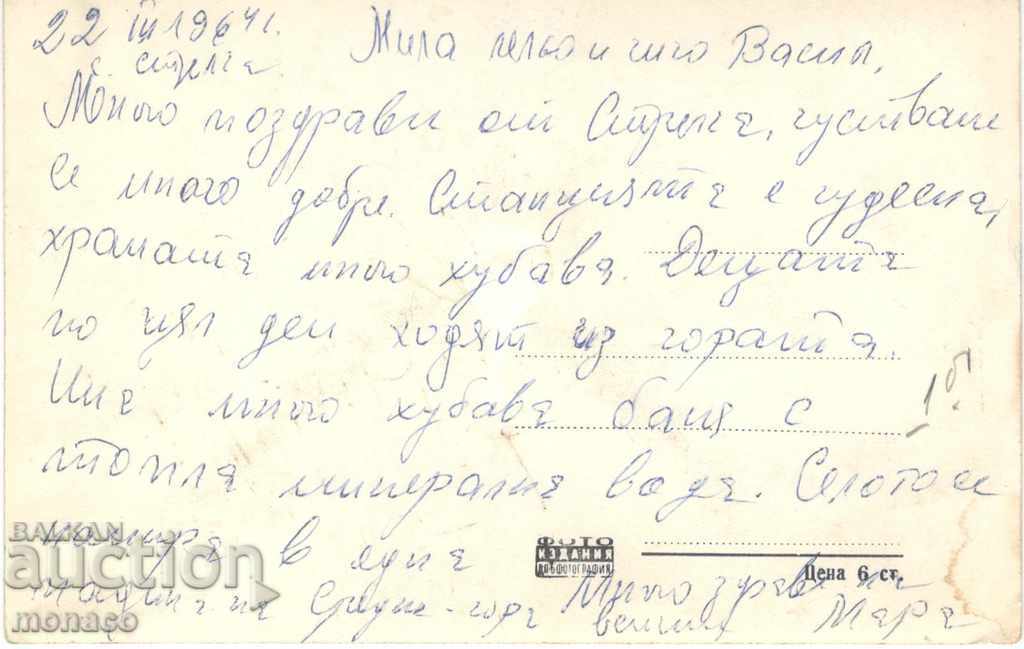 22 III 1964 г.
с. Стрелча.
Мила лельо и чичо Васил,
Много поздрави от Стрелча, чустваме
се много добре. Станцията е чудесна,
храната много хубава. Децата
по цял ден ходят из гората.
Има много хубава баня с
топла минерална вода. Селото се
намира в една
падина на Средна-гора
Много здраве на
всички Мара
1б.
ФОТО
ИЗДАНИЯ
ДП БФОТОГРАФИЯ
Цена 6 ст.
БАЛКАН
auction
monaco